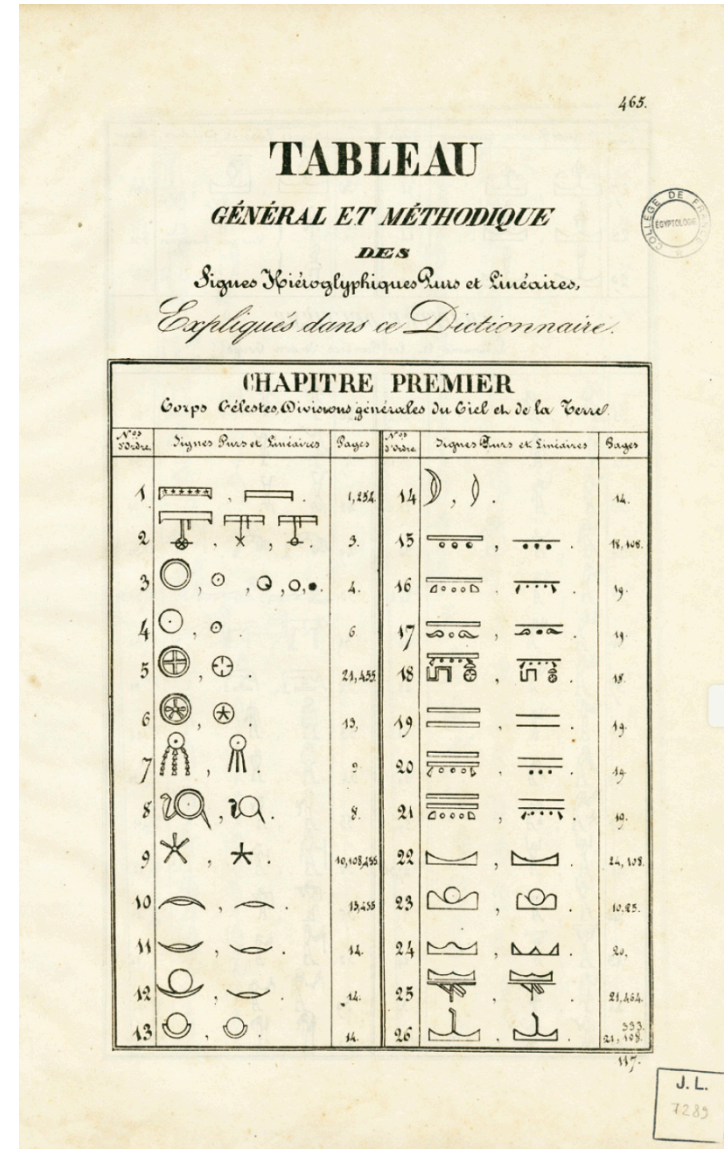 465.
TABLEAU
GÉNÉRAL ET MÉTHODIQUE
DES
Signes Hiéroglyphiques Purs et Linéaires,
Expliqués dans ce Dictionnaire.
COLLÈGE DE FRANCE
ÉGYPTOLOGIE
CHAPITRE PREMIER
Corps Célestes, Divisions générales du Ciel et de la Terre.
Nos d'Ordre Signes Purs et Linéaires Pages Nos d'Ordre Signes Purs et Linéaires Pages
1 , . 1, 254. 14 , . 14.
2 , , . 3. 15 , . 18, 108.
3 , , , , . 4. 16 , . 19.
4 , . 6 17 , . 19.
5 , . 21, 455 18 , . 18.
6 , . 13, 19 , . 19.
7 , . 20 , . 19.
8 , . 8. 21 , . 19.
9 , . 10, 108, 455 22 , . 24, 108.
10 , . 13, 455 23 , . 10. 25.
11 , . 14. 24 , . 20,
12 , . 14. 25 , . 21, 464.
13 , . 14. 26 , . 21, 108. 333.
117.
J. L.
7289